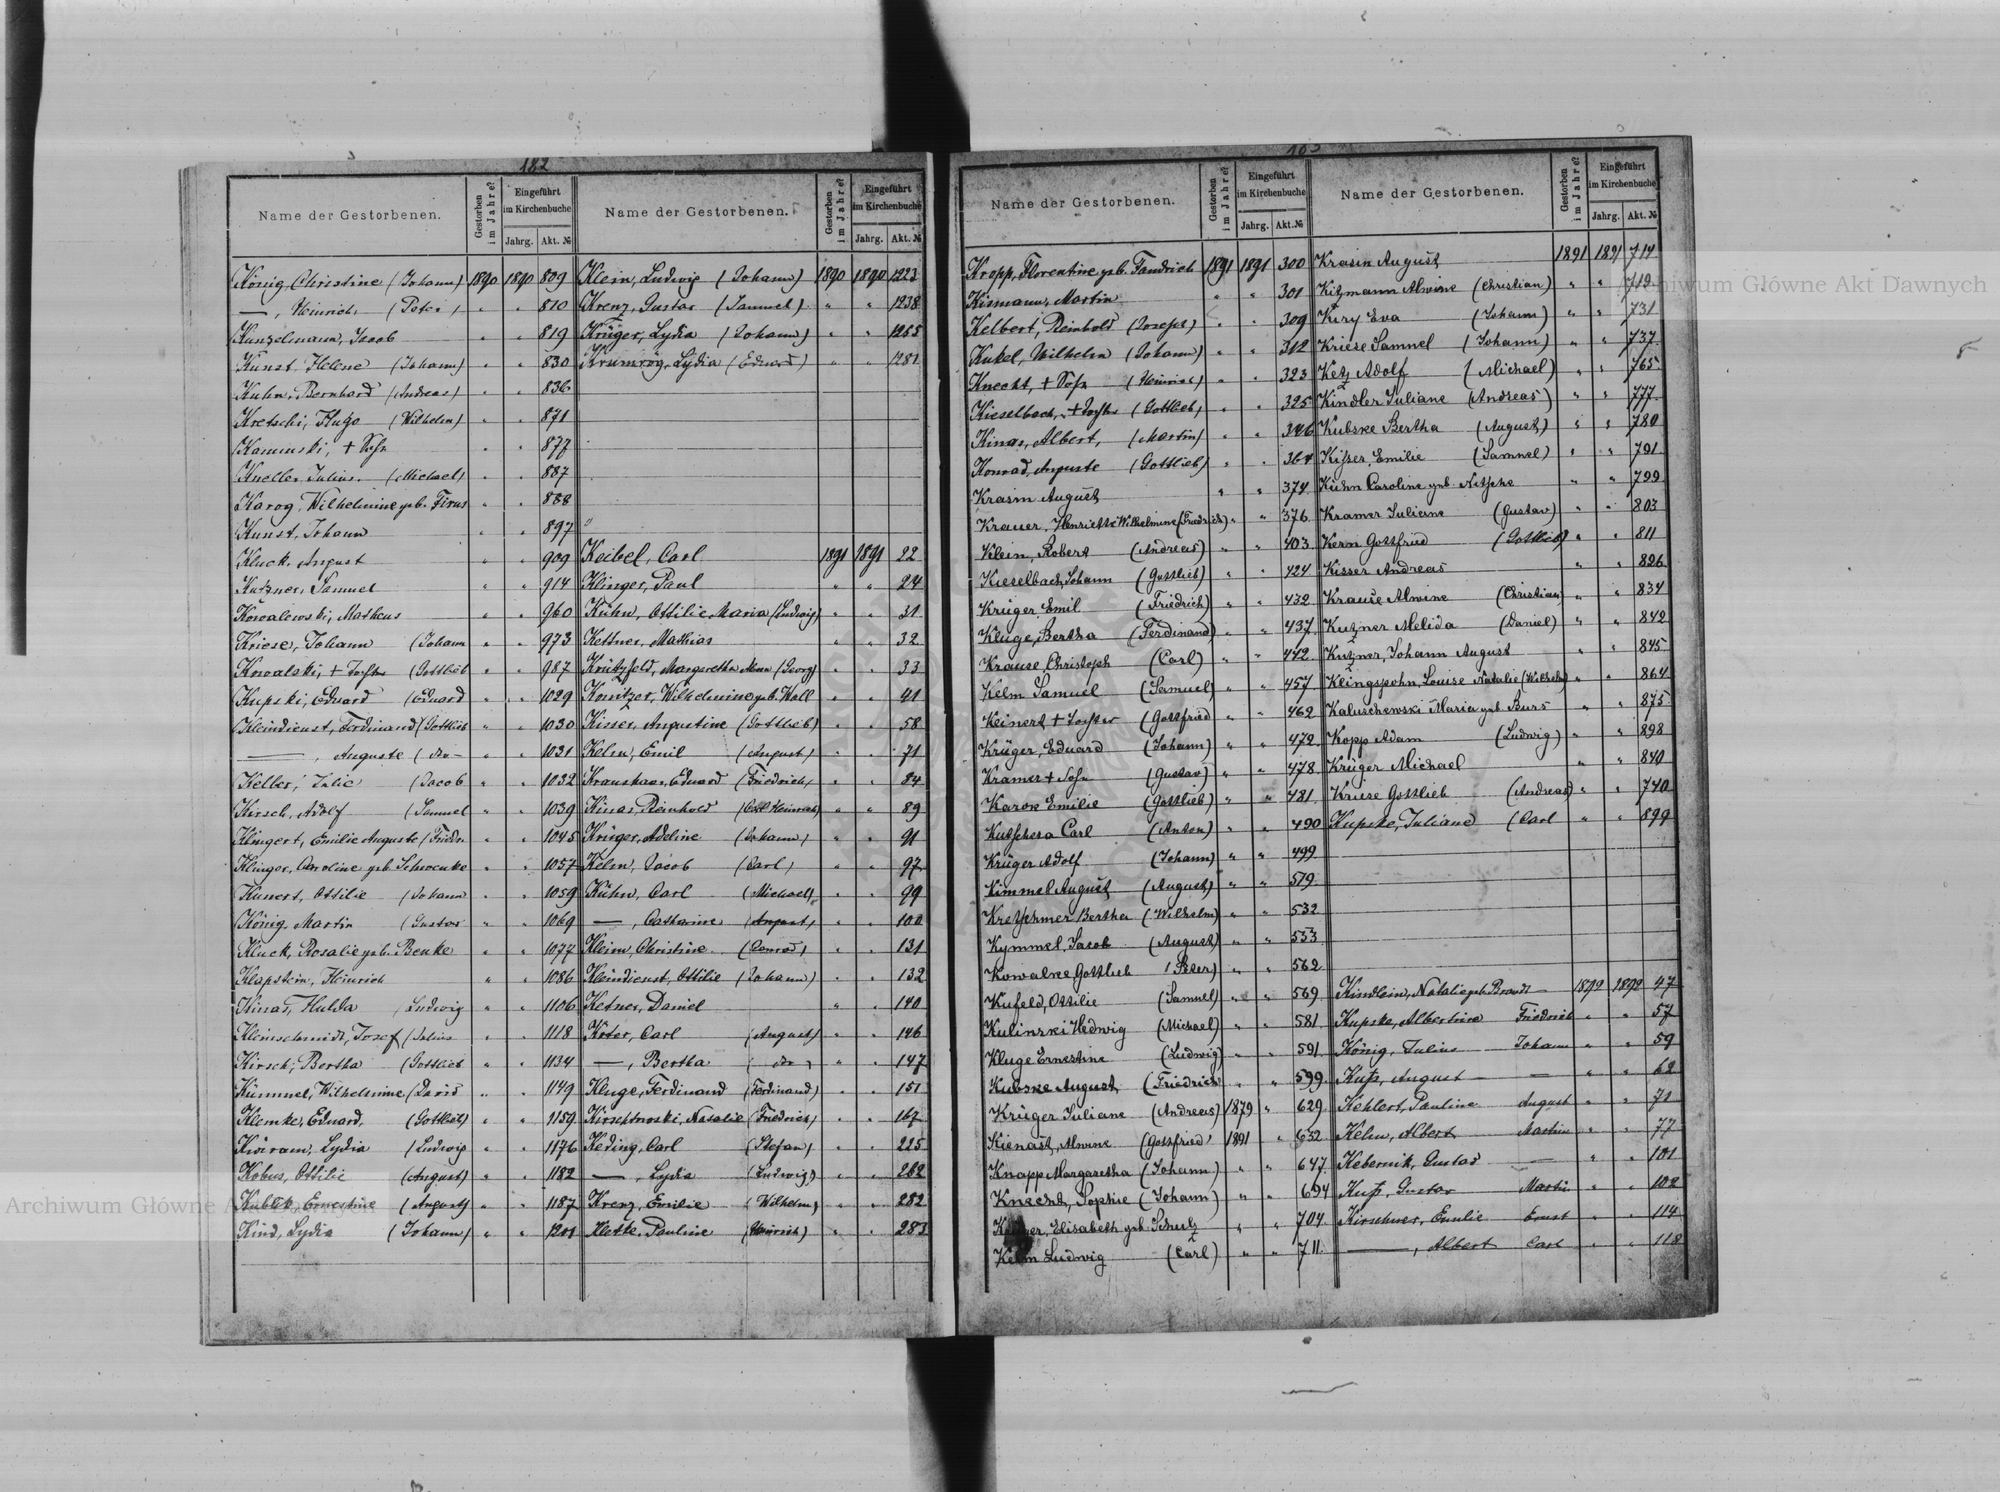 182
Name der Gestorbenen.
Gestorben im Jahre?
Eingeführt im Kirchenbuche
Jahrg. Akt. №
König Christine (Johann) 1890 1890 809
—, Heinrich (Peter) " " 810
Kunzelmann, Jacob " " 819
Kunst, Helene (Johann) " " 830
Kuhn, Bernhard (Andreas) " " 836
Kretschi, Hugo (Wilhelm) " " 871
Kaminski, + Sohn " " 877
Kneller Julius (Michael) " " 887
Karog, Wilhelmine geb. " " 888
Kunst, Johann " " 897
Kluck, August " " 909
Kutzner, Samuel " " 914
Kowalewski, Matheus " " 960
Kriese, Johann (Johann " " 973
Kowalski, + Tochter (Gottlieb " " 987
Kupski, Eduard (Eduard " " 1029
Kleindienst, Ferdinand (Gottlieb " " 1030
—, Auguste (do— " " 1031
Keller, Julie (Jacob " " 1032
Kirsch, Adolf (Samuel " " 1039
Klingert, Emilie Auguste (Friedr " " 1045
Klinger, Caroline geb. " " 1057
Kunert, Ottilie (Johann " " 1059
König, Martin (Gustav " " 1069
Kluck, Rosalie geb. Benke " " 1077
Klapstein, Heinrich " " 1086
Kinas, Hulda (Ludwig " " 1106
Kleinschmidt, Josef (Julius " " 1118
Kirsch, Bertha (Gottlieb " " 1134
Kümmel, Wilhelmine (David " " 1149
Klemke, Eduard, (Gottlieb) " " 1159
Kwiram, Lydia (Ludwig " " 1176
Kobus, Ottilie (August) " " 1182
Kublik, Ernestine (August) " " 1187
Kind, Lydia (Johann) " " 1201
Name der Gestorbenen.
Gestorben im Jahre?
Eingeführt im Kirchenbuche
Jahrg. Akt. №
Klein, Ludwig (Johann) 1890 1890 1223
Krenz, Gustav (Samuel) " " 1238
Krüger, Lydia (Johann) " "
Krumrög, Lydia (Eduard) " " 1281
Keibel, Carl 1891 1891 22
Klinger, Paul " " 24
Kühn, Ottilie Maria (Ludwig) " " 31
Kettner, Mathias " " 32
Krützfeld, Margaretha Anna (Georg) " " 33
Konitzer, Wilhelmine geb. Woll " " 41
Kisser, Augustine (Gottlieb) " " 58
Kelm, Emil (August) " " 71
Kraushaar, Eduard (Friedrich) " " 84
Kinas, Reinhold (Carl Heinrich) " " 89
Krüger, Adeline (Johann) " " 91
Kelm, Jacob (Carl) " " 97
Kühn, Carl (Michael) " " 99
—, Catharine (August) " " 100
Kleim, Christine (Conrad) " " 131
Kleindienst, Ottilie (Johann) " " 132
Ketner, Daniel " " 140
Köter, Carl (August) " " 146
—, Bertha (do) " " 147
Kluge, Ferdinand (Ferdinand) " " 151
Natalie (Friedrich) " " 167
Keding, Carl (Stefan) " " 225
—, Lydia (Ludwig) " " 262
Krenz, Emilie (Wilhelm) " " 282
Kletke, Pauline (Heinrich) " " 283
Name der Gestorbenen.
Gestorben im Jahre?
Eingeführt im Kirchenbuche
Jahrg. Akt. №
Kropp, Florentine geb. Fandrich 1891 1891 300
Kismann, Martin " " 301
Kelbert, Reinhold (Joseph) " " 309
Kukel, Wilhelm (Johann) " " 312
Knecht, + Sohn (Heinrich) " " 323
Kieselbach, + Tochter (Gottlieb) " " 325
Kinas, Albert, (Martin) " " 346
Konrad, Auguste (Gottlieb) " " 364
Krasin August " " 374
Krauer, Henriette Wilhelmine (Friedrich) " " 376
Klein, Robert (Andreas) " " 403
Kieselbach, Johann (Gottlieb) " " 424
Krüger Emil (Friedrich) " " 432
Kluge, Bertha (Ferdinand) " " 437
Krause, Christoph (Carl) " " 442
Kelm Samuel (Samuel) " " 457
Keinert + Tochter (Gottfried " " 462
Krüger, Eduard (Johann) " " 472
Kramer + Sohn (Gustav) " " 478
Karow Emilie (Gottlieb) " " 481
Kutschera Carl (Anton) " " 490
Krüger Adolf (Johann) " " 499
Kimmel August (August) " " 519
Kretschmer Bertha (Wilhelm) " " 532
Kymmel, Jacob (August) " " 553
Kowalke Gottlieb (Peter) " " 562
Kufeld, Ottilie (Samuel) " " 569
Kulinski Hedwig (Michael) " " 581
Kluge Ernestine (Ludwig) " " 591
Kubske August (Friedrich " " 599
Krüger Juliane (Andreas) 1879 " 629
Kienast, Alwine (Gottfried) 1891 " 632
Knapp Margaretha (Johann) " " 647
Knecht, Sophie (Johann) " " 694
Elisabeth geb. Schulz " " 704
Kelm Ludwig (Carl) " " 711
Name der Gestorbenen.
Gestorben im Jahre?
Eingeführt im Kirchenbuche
Jahrg. Akt. №
Krasin August 1891 1891 714
Kitzmann Alwine (Christian) " " 719
Kiry Eva (Johann) " " 731
Kriese Samuel (Johann) " " 737
Ketz Adolf (Michael) " " 765
Kindler Juliane (Andreas) " " 777
Kubske Bertha (August) " " 780
Kisser, Emilie (Samuel) " " 791
Kühn Caroline geb. Nitschke " " 799
Kramer Juliane (Gustav) " " 803
Kern Gottfried (Gottlieb) " " 811
Kisser Andreas " " 826
Krause Alwine (Christian) " " 834
Kutzner Melida (Daniel) " " 842
Kutzner, Johann August " " 845
Klingspohn, Louise Natalie (Wilhelm) " " 864
Kaluschewski Maria geb. Burs " " 875
Kopp Adam (Ludwig) " " 898
Krüger Michael " " 840
Kriese Gottlieb (Andreas) " " 740
Kupske, Juliane (Carl " " 899
Kindlein, Natalie geb. Brandt — 1892 1892 47
Kupske, Albertine Friedrich " " 57
König, Julius Johann " " 59
Kutz, August — " " 62
Kehlert, Pauline August " " 71
Kelm, Albert Martin " " 77
Kebernik, Gustav — " " 101
Kutz, Gustav Martin " " 102
Kirschner, Emilie Ernst " " 114
—, Albert Carl " " 118
Archiwum Główne Akt Dawnych
Archiwum Główne Akt Dawnych